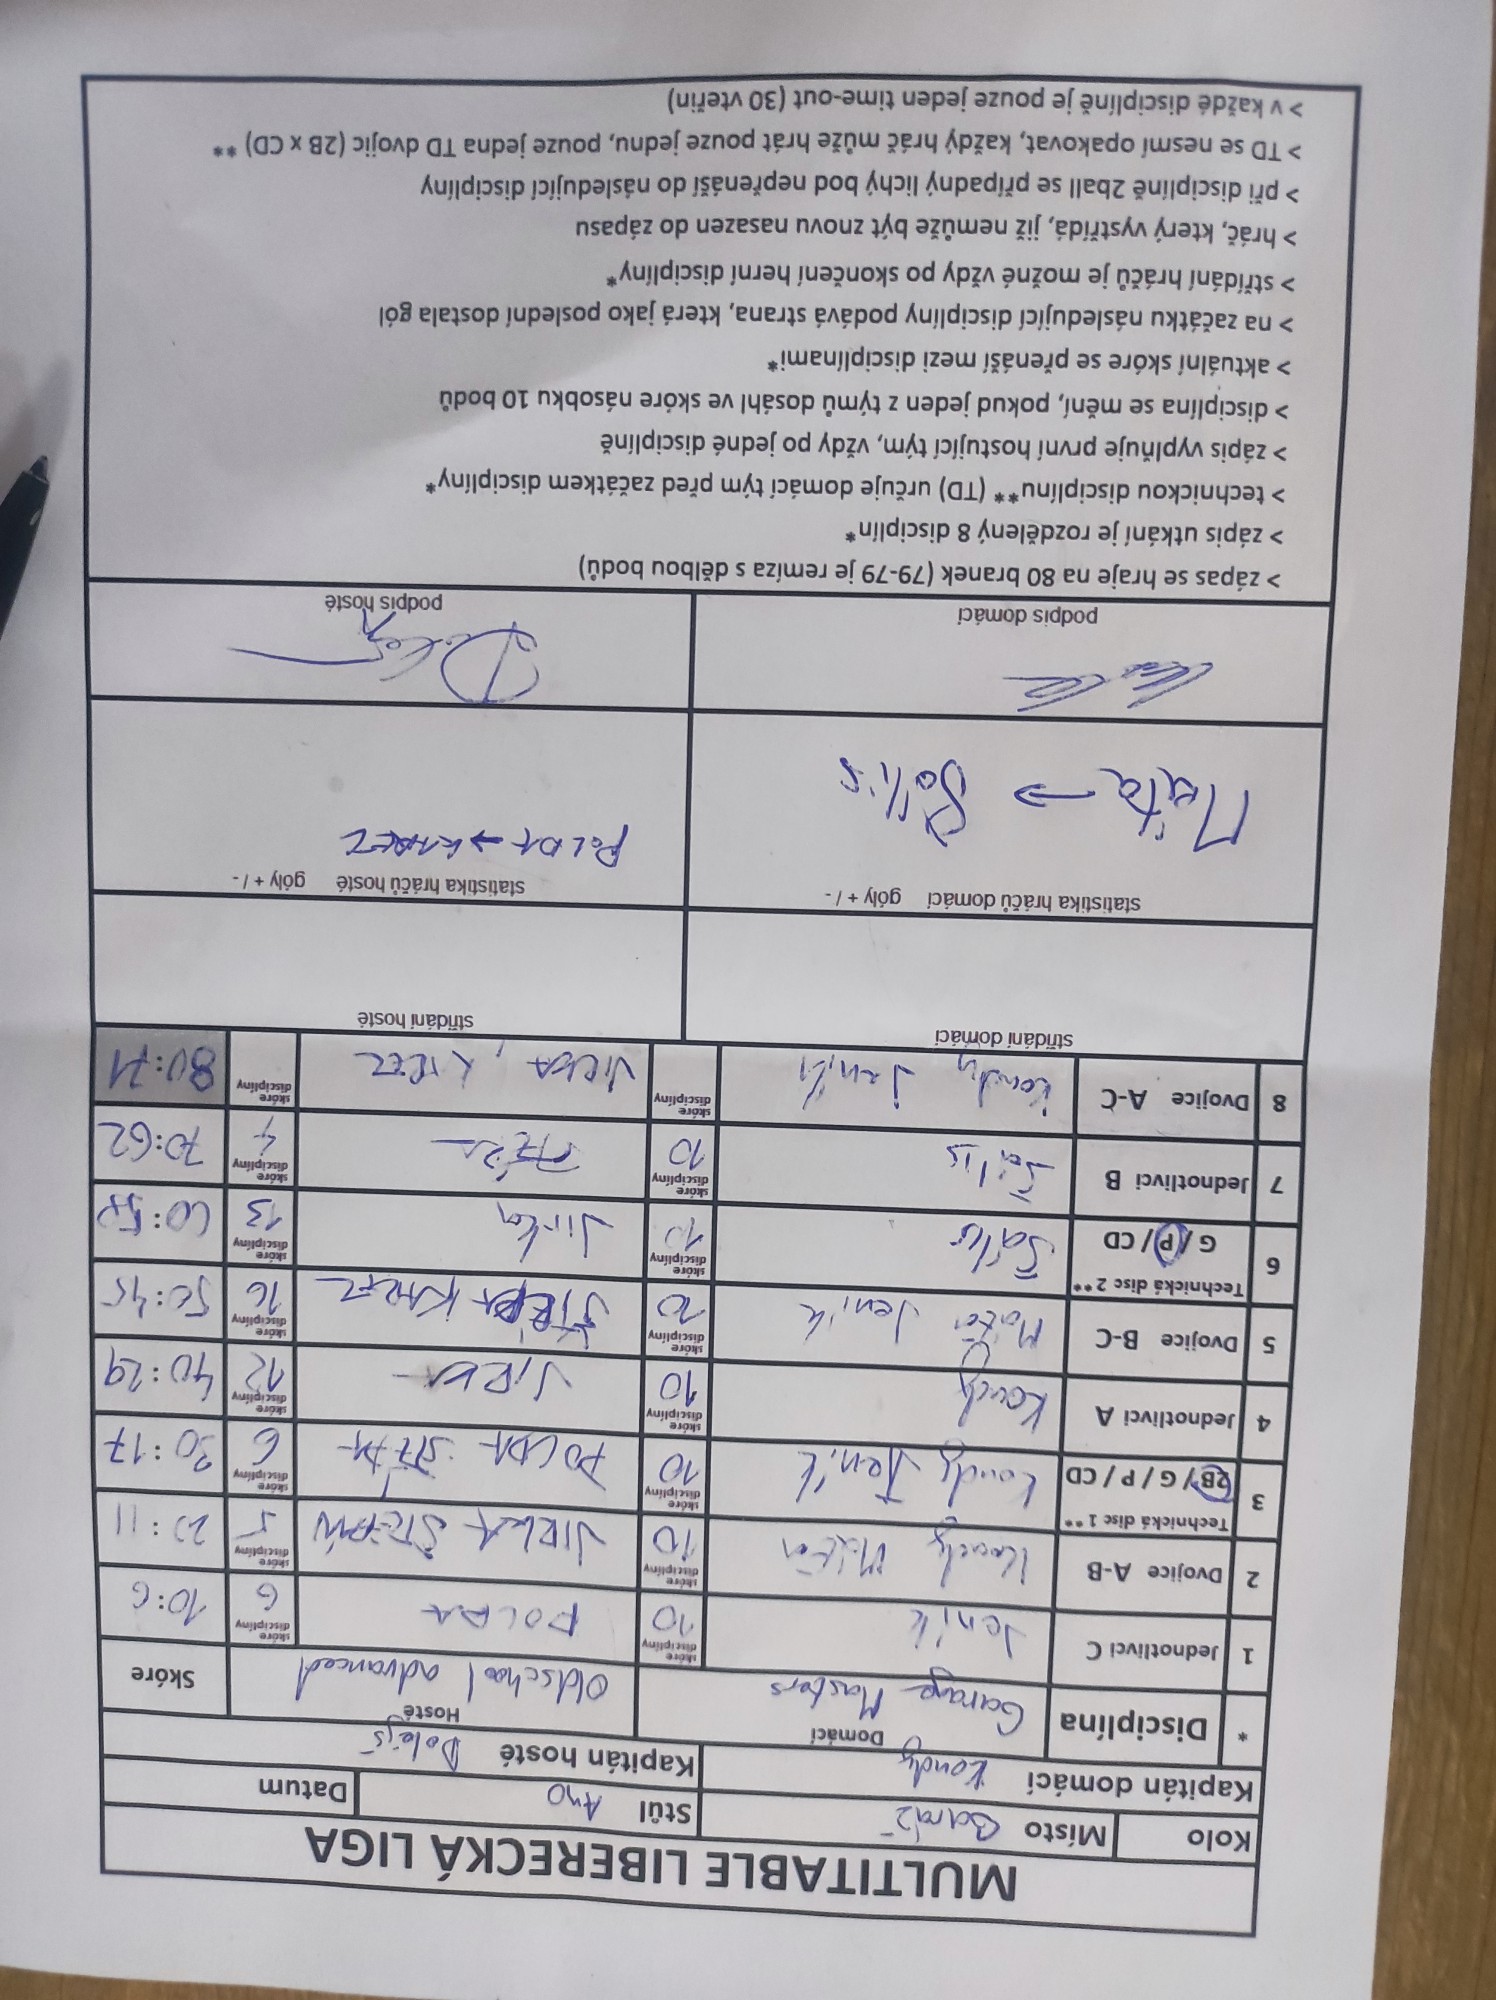 MULTITABLE LIBERECKÁ LIGA
Kolo Místo Garáž Stůl Ano Datum
Kapitán domácí Koudy Kapitán hosté Dolejš
* Disciplína Domácí Garage Masters Hosté Oldschool advanced Skóre
1 Jednotlivci C Jeník skóre disciplíny 10 POLDA skóre disciplíny 6 10:6
2 Dvojice A-B Koudy Máťa skóre disciplíny 10 JIRKA ŠTĚPÁN skóre disciplíny 5 20:11
3 Technická disc 1 ** 2B / G / P / CD Koudy Jeník skóre disciplíny 10 POLDA ŠTĚPA skóre disciplíny 6 30:17
4 Jednotlivci A Koudy skóre disciplíny 10 JIRKA skóre disciplíny 12 40:29
5 Dvojice B-C Máťa Jeník skóre disciplíny 10 KAREL skóre disciplíny 16 50:45
6 Technická disc 2 ** G / P / CD Šális skóre disciplíny 10 Jirka skóre disciplíny 13 60:58
7 Jednotlivci B Šális skóre disciplíny 10 skóre disciplíny 4 70:62
8 Dvojice A-C Koudy Jeník skóre disciplíny JIRKA, KAREL skóre disciplíny 80:71
střídání domácí střídání hosté
statistika hráčů domácí góly + / - statistika hráčů hosté góly + / -
Máťa → Šális POLDA → KAREL
podpis domácí podpis hosté
> zápas se hraje na 80 branek (79-79 je remíza s dělbou bodů)
> zápis utkání je rozdělený 8 disciplín*
> technickou disciplínu** (TD) určuje domácí tým před začátkem disciplíny*
> zápis vyplňuje první hostující tým, vždy po jedné disciplíně
> disciplína se mění, pokud jeden z týmů dosáhl ve skóre násobku 10 bodů
> aktuální skóre se přenáší mezi disciplínami*
> na začátku následující disciplíny podává strana, která jako poslední dostala gól
> střídání hráčů je možné vždy po skončení herní disciplíny*
> hráč, který vystřídá, již nemůže být znovu nasazen do zápasu
> při disciplíně 2ball se případný lichý bod nepřenáší do následující disciplíny
> TD se nesmí opakovat, každý hráč může hrát pouze jednu, pouze jedna TD dvojic (2B x CD) **
> v každé disciplíně je pouze jeden time-out (30 vteřin)